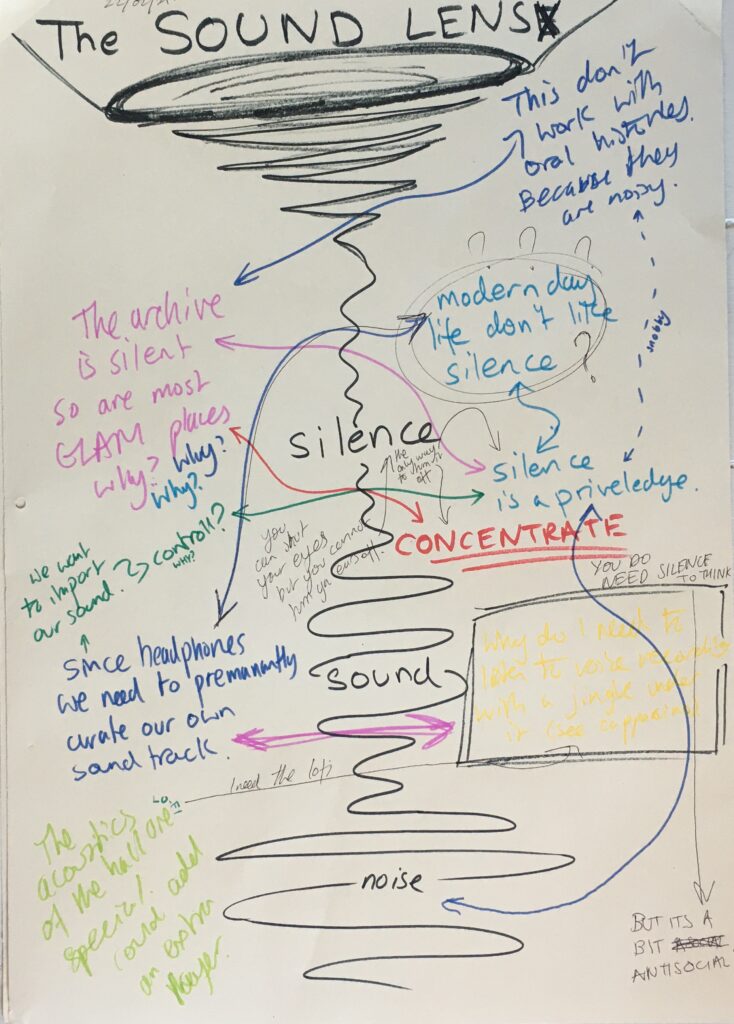 The SOUND LENS
This don't
work with
oral histories.
Because they
are noisy.
snobby
? ? ?
modern day
life don't like
silence ?
The archive
is silent
so are most
GLAM places
why? why?
why?
silence
the
only way
to
off
silence
is a priveledge.
CONCENTRATE
you
can shut
your eyes
but you cannot
YOU DO
NEED SILENCE
TO THINK
we want
to import
our sound. → controll?
why?
since headphones
we need to premanantly
curate our own
sound track.
sound
why do I need to
listen to voice recording
with a jingle under
it (see
I need the
The
acoustics
of the hall are
special. could add
an extra
layer.
noise
BUT ITS A
BIT
ANTISOCIAL